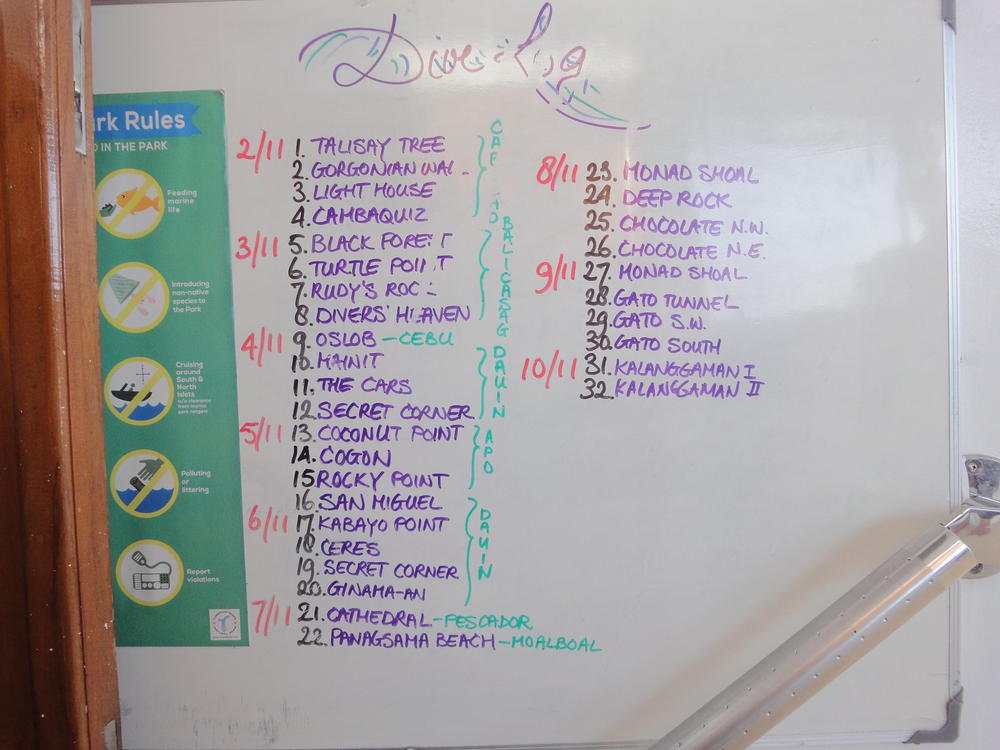 Dive Log
rk Rules
IN THE PARK
Feeding
marine
life
Introducing
non-native
species to
the Park
Cruising
around
South &
North
Islets
w/o clearance
from marine
park rangers
Polluting
or
littering
Report
violations
2/11 1. TALISAY TREE
2. GORGONIAN WAL
3. LIGHT HOUSE
4. CAMBAQUIZ
3/11 5. BLACK FORE T
6. TURTLE POI T
7. RUDY'S ROC
8. DIVERS' H AVEN
BALICASAG
4/11 9. OSLOB - CEBU
10. MAINIT
11. THE CARS
12. SECRET CORNER
DAUIN
5/11 13. COCONUT POINT
14. COGON
15 ROCKY POINT
APO
16. SAN MIGUEL
6/11 17. KABAYO POINT
18. CERES
19. SECRET CORNER
20. GINAMA-AN
DAUIN
7/11 21. CATHEDRAL - PESCADOR
22. PANAGSAMA BEACH - MOALBOAL
8/11 23. MONAD SHOAL
24. DEEP ROCK
25. CHOCOLATE N.W.
26. CHOCOLATE N.E.
9/11 27. MONAD SHOAL
28. GATO TUNNEL
29. GATO S.W.
30. GATO SOUTH
10/11 31. KALANGGAMAN I
32. KALANGGAMAN II